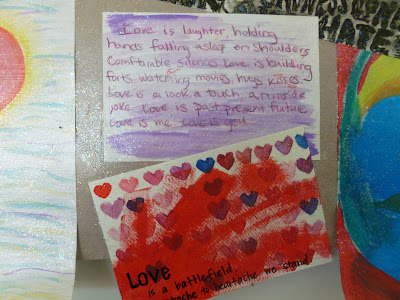 Love is laughter, holding
hands falling asleep on shoulders
Comfortable silences love is building
forts watching movies, hugs kisses
Love is a look a touch, an inside
joke Love is past present future
Love is me Love is you
Love
is a battlefield.
heartache to heartache we stand.